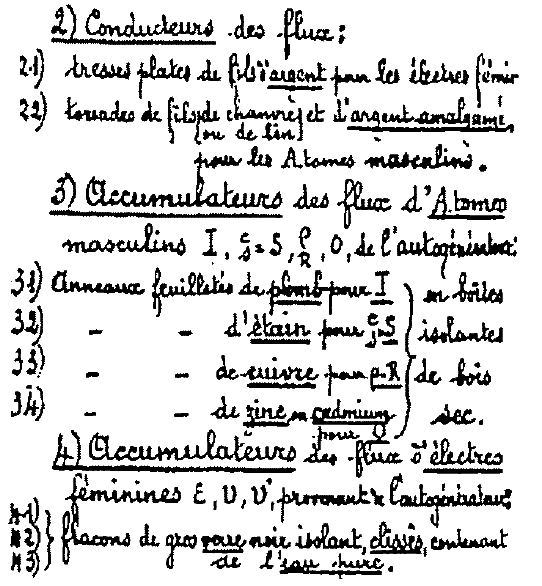 2) Conducteurs des flux:
21) tresses plates de fils d'argent pour les électres fémin
22) torsades de fils de chanvre et d'argent amalgamé,
(ou de lin)
pour les Atomes masculins.
3) Accumulateurs des flux d'Atomes
masculins I, S, R, O, de l'autogénérateur:
31) Anneaux feuilletés de plomb pour I en boîtes
32) - - d'étain pour S isolantes
33) - - de cuivre pour R de bois
34) - - de zinc ou cadmium sec.
pour O
4) Accumulateurs des flux d'électres
féminines E, U, V, provenant de l'autogénérateur:
41)
42) flacons de gros verre noir isolant, clissés, contenant
43) de l'eau pure.